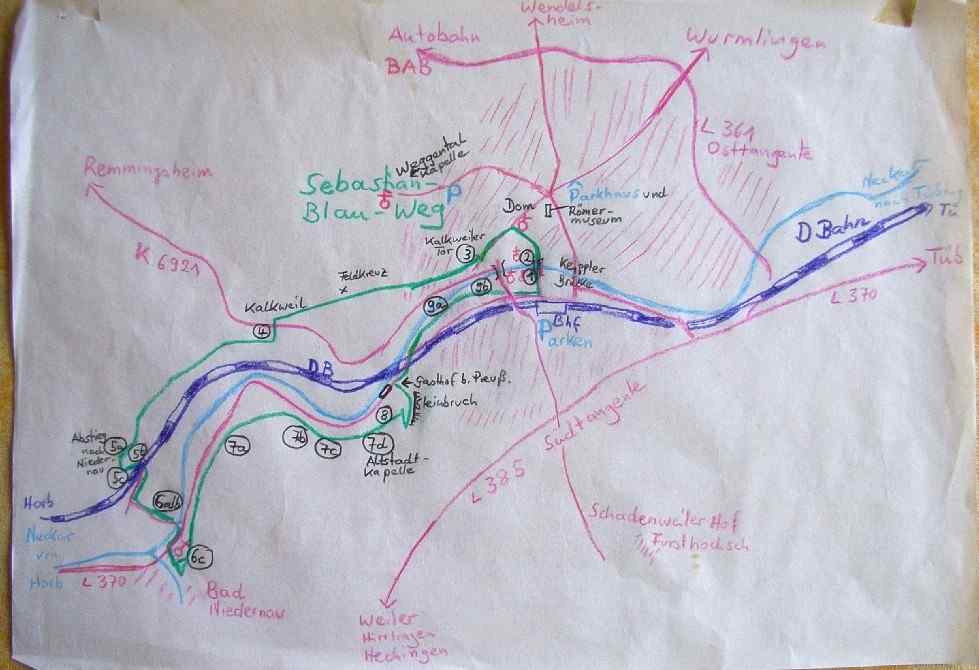 Wendels-
heim
Autobahn
BAB
Wurmlingen
L 361
Osttangente
Remmingsheim
Weggental
Kapelle
Sebastian-
Blau-Weg
P
Parkhaus und
Römer-
museum
Dom
Neckar
nach
D Bahn
Tü
Tüb
L 370
K 6921
Kalkweiler
Tor
3
2
1
Keppler
Brücke
Feldkreuz
x
9b
9a
Kalkweil
4
Bhf
Parken
DB
Gasthof b. Preuß.
Steinbruch
8
7a
7b
7c
7d
Altstadt-
Kapelle
Abstieg
nach
Nieder-
nau
5a
5b
5c
Südtangente
L 385
Horb
Neckar
von
Horb
6a+b
6c
L 370
Bad
Niedernau
Schadenweiler Hof
Weiler
Hirrlingen
Hechingen